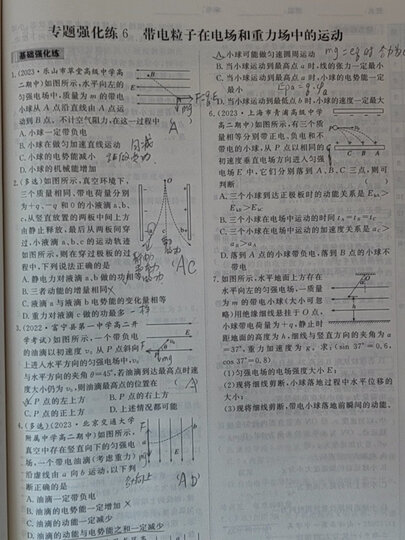 专题强化练6 带电粒子在电场和重力场中的运动
基础强化练
1.(2023·乐山市草堂高级中学高
二期中)如图所示,水平向左的
匀强电场中,质量为m的带电
小球从A点沿直线由A点运
动到B点,不计空气阻力,在这一过程中
A
A.小球一定带负电
B.小球在做匀加速直线运动
C.小球的电势能减小
D.小球的机械能增加
2.(多选)如图所示,真空环境下,
三个质量相同、带电荷量分别
为+q、-q和0的小液滴a、b、
c,从竖直放置的两板中间上方
由静止释放,最后从两板间穿
过,小液滴a、b、c的运动轨迹
如图所示,则在穿过极板的过
程中,下列说法正确的是
AC
A.静电力对液滴a、b做的功相等
B.三者动能的增量相同
C.液滴a与液滴b电势能的变化量相等
D.重力对液滴c做的功最多
3.(2022·富宁县第一中学高二开
学考试)如图所示,一个带负电
的油滴以初速度v₀从P点斜向
上进入水平方向的匀强电场中,v₀
与水平方向的夹角θ=45°,若油滴到达最高点时速
度大小仍为v₀,则油滴最高点的位置在
A
A.P点的左上方
B.P点的右上方
C.P点的正上方
D.上述情况都可能
4.(多选)(2023·北京交通大学
附属中学高二期中)如图所示,
真空中存在竖直向下的匀强电
场,一个带电油滴(考虑重力)
沿虚线由a向b运动,以下判
断正确的是
A.油滴一定带负电
B.油滴的电势能一定增加
C.油滴的动能一定减少
D.油滴的动能与电势能之和一定减少
A.小球可能做匀速圆周运动
B.当小球运动到最高点a时,线的张力一定最小
C.当小球运动到最高点a时,小球的电势能一定
最小
D.小球运动到最低点b时,小球的速度一定最大
6.(2023·上海市青浦高级中学
高二期中)如图所示,有三个质
量相等分别带正电、负电和不
带电的小球,从P点以相同的
初速度垂直电场方向进入匀强
电场E中,它们分别落到A、B、C三点,则可
判断
A.三个小球到达正极板时的动能关系是EₖA>
EₖB>EₖC
B.三个小球在电场中运动的时间tA=tB=tC
C.三个小球在电场中运动的加速度关系是aC>
aB>aA
D.落到A点的小球带负电,落到B点的小球不
带电
7.如图所示,水平地面上方存在
水平向左的匀强电场,一质量
为m的带电小球(大小可忽
略)用绝缘细线悬挂于O点,
小球带电荷量为+q,静止时
距地面的高度为h,细线与竖直方向的夹角为α
=37°,重力加速度为g.求:(sin 37°=0.6,
cos 37°=0.8)
(1)匀强电场的电场强度大小E;
(2)现将细线剪断,小球落地过程中水平位移的
大小;
(3)现将细线剪断,带电小球落地前瞬间的动能.